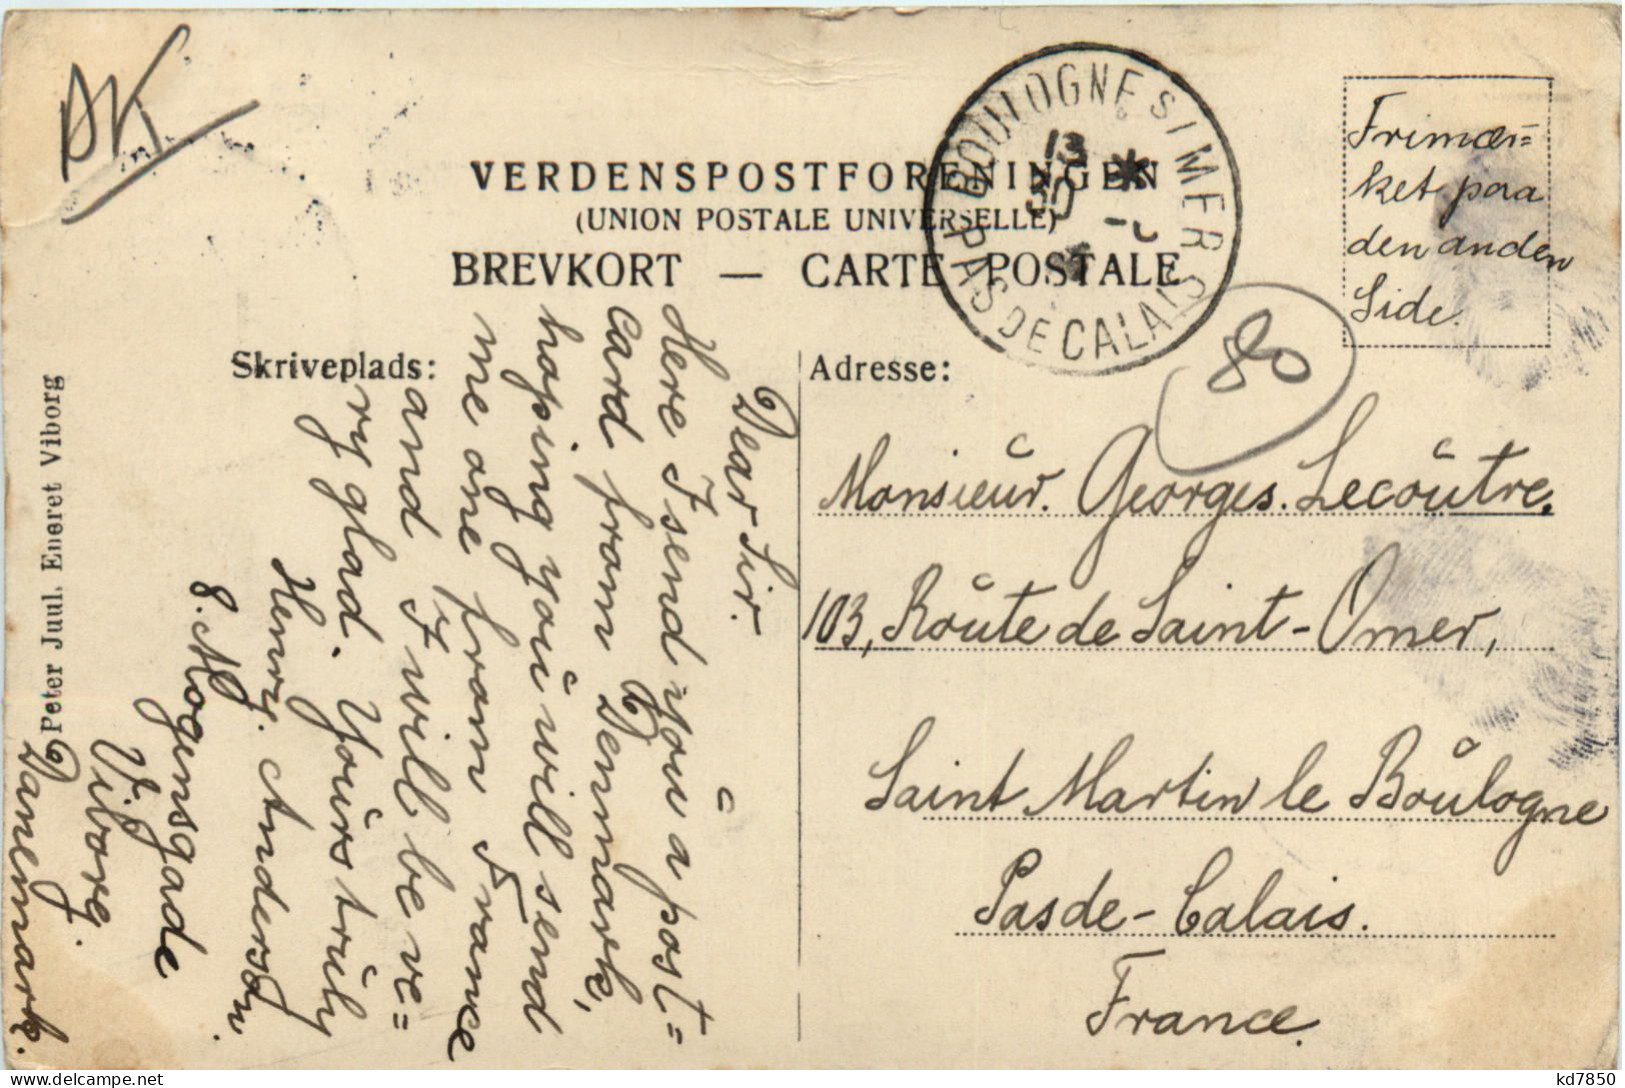 AK
VERDENSPOSTFORENINGEN
(UNION POSTALE UNIVERSELLE)
BREVKORT — CARTE POSTALE
BOULOGNE S/MER
PAS DE CALAIS
13
30
Frimær=
ket paa
den anden
Side.
80
Skriveplads:
Dear Sir.
Here I send you a post=
card from Denmark,
hoping you will send
me one from France
and I will be ve=
ry glad. Yours truly
Henry. Anderson.
8. Mogensgade
Viborg
Danemark.
Adresse:
Monsieur. Georges. Lecoutre.
103, Route de Saint-Omer,
Saint Martin le Boulogne
Pasde-Calais.
France.
Peter Juul. Eneret Viborg
kd7850